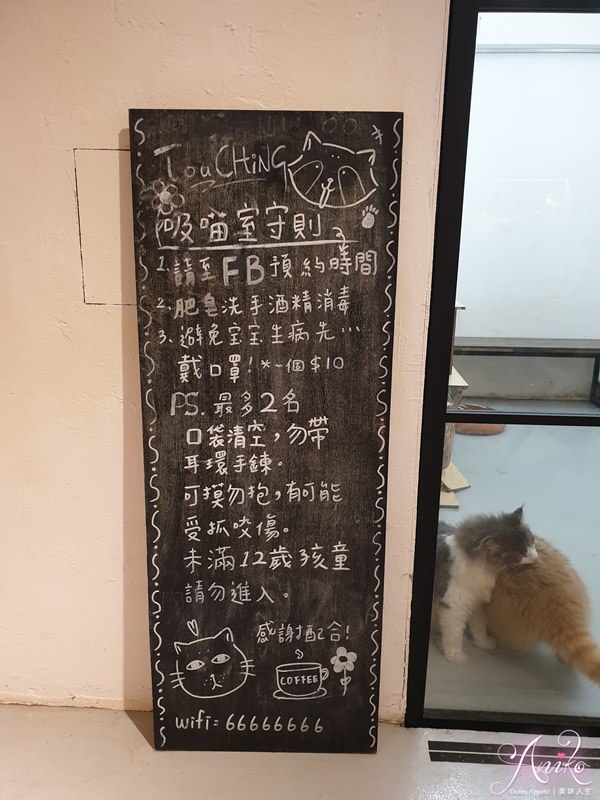 TouCHiNG
吸喵室守則
1.請至FB預約時間
2.肥皂洗手酒精消毒
3.避免宝宝生病先...
戴口罩!*一個$10
PS.最多2名
口袋清空,勿帶
耳環手鍊。
可摸勿抱,有可能
受抓咬傷。
未滿12歲孩童
請勿進入。
感謝配合!
COFFEE
wifi=66666666
Aniko
Outen Appetit | 美味人生